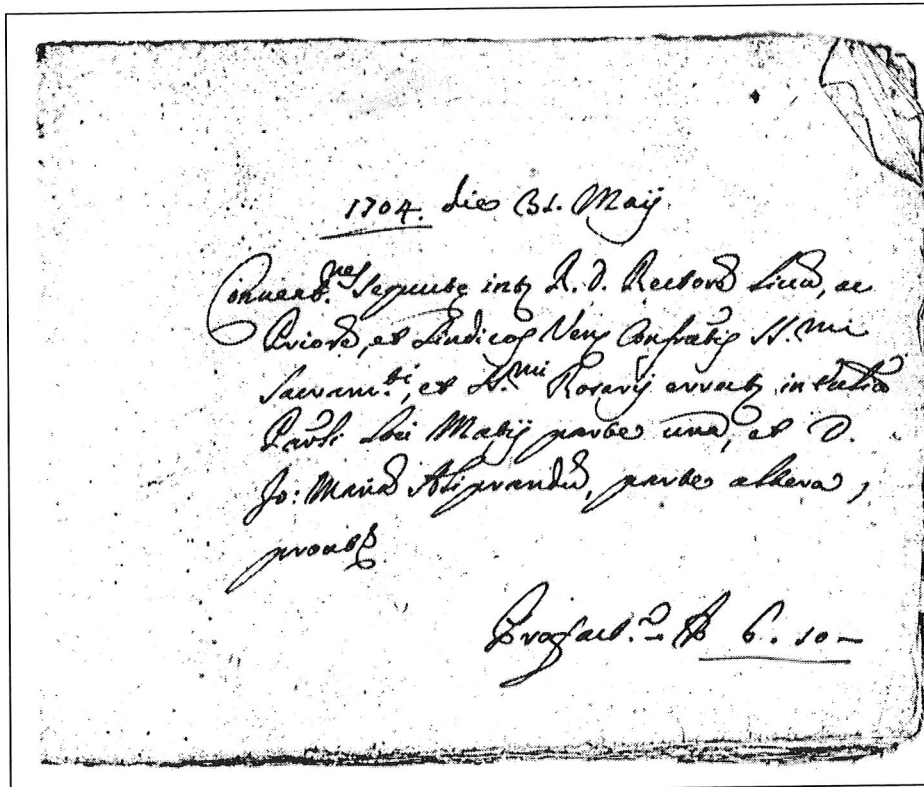 1704. die 31. Maij
Convent.nes sequute int. R. D. Rectore, ac
Priore, et Sindicos Ven. Confratis SS.mi
Sacram.ti, et SS.mi Rosarij erect. in
Pauli Loci parte una, et D.
Jo: Maria Aliprandu, parte altera,
prout
6. 10 –